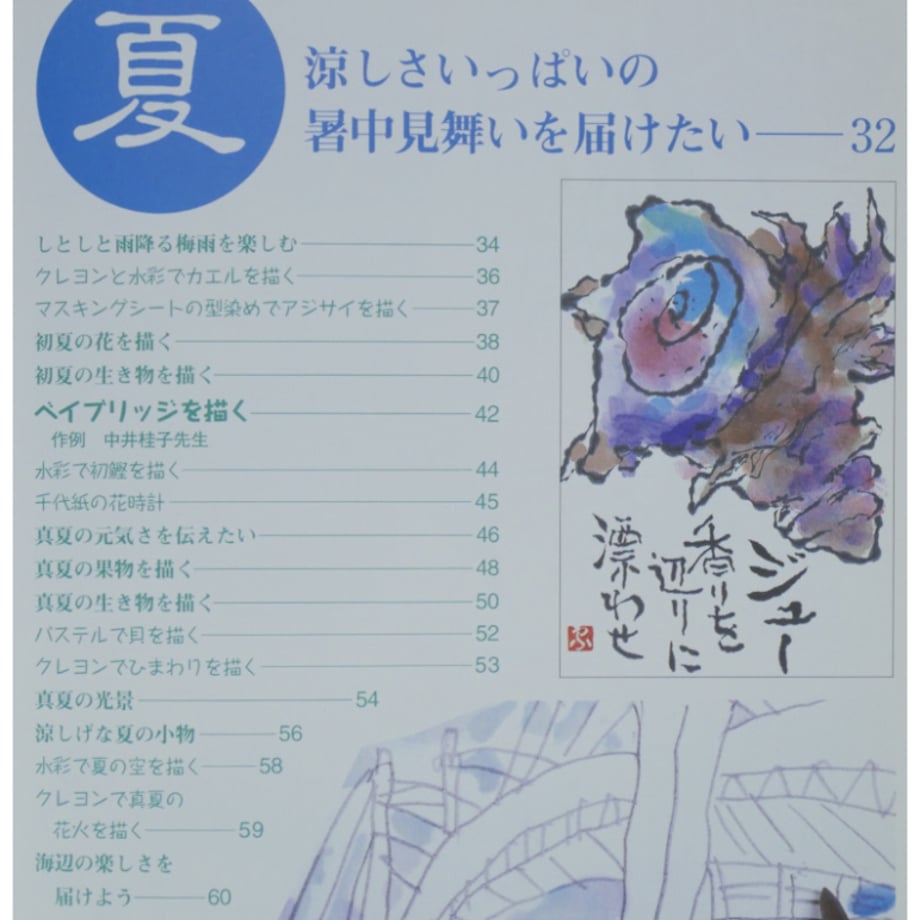 夏
涼しさいっぱいの
暑中見舞いを届けたい――32
しとしと雨降る梅雨を楽しむ――34
クレヨンと水彩でカエルを描く――36
マスキングシートの型染めでアジサイを描く――37
初夏の花を描く――38
初夏の生き物を描く――40
ベイブリッジを描く――42
作例 中井桂子先生
水彩で初鰹を描く――44
千代紙の花時計――45
真夏の元気さを伝えたい――46
真夏の果物を描く――48
真夏の生き物を描く――50
パステルで貝を描く――52
クレヨンでひまわりを描く――53
真夏の光景――54
涼しげな夏の小物――56
水彩で夏の空を描く――58
クレヨンで真夏の
花火を描く――59
海辺の楽しさを
届けよう――60
ジュー
香りを
辺りに
漂わせ